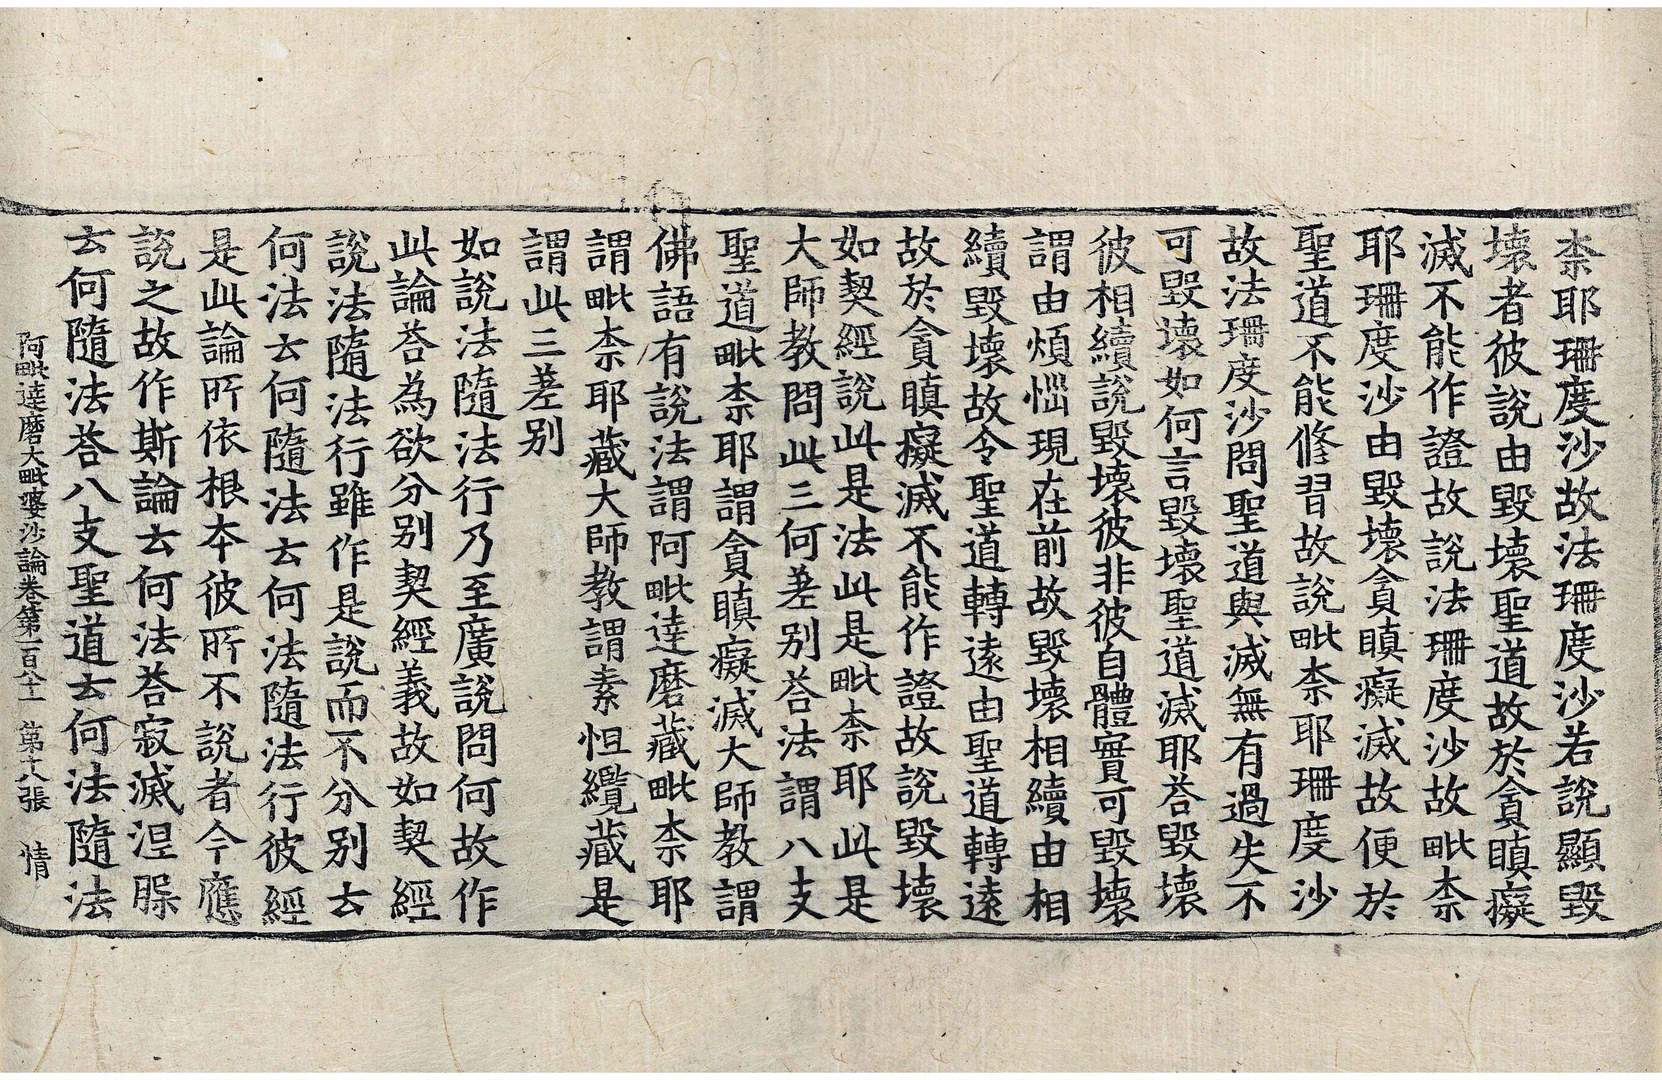 柰耶珊度沙故法珊度沙若說顯毀
壞者彼說由毀壞聖道故於貪瞋癡
滅不能作證故說法珊度沙故毗柰
耶珊度沙由毀壞貪瞋癡滅故便於
聖道不能修習故說毗柰耶珊度沙
故法珊度沙問聖道與滅無有過失不
可毀壞如何言毀壞聖道滅耶荅毀壞
彼相續說毀壞彼非彼自體實可毀壞
謂由煩惱現在前故毀壞相續由相
續毀壞故令聖道轉遠由聖道轉遠
故於貪瞋癡滅不能作證故說毀壞
如契經說此是法此是毗柰耶此是
大師教問此三何差别荅法謂八支
聖道毗柰耶謂貪瞋癡滅大師教謂
佛語有說法謂阿毗達磨藏毗柰耶
謂毗柰耶藏大師教謂素怛纜藏是
謂此三差别
如說法隨法行乃至廣說問何故作
此論荅為欲分别契經義故如契經
說法隨法行雖作是說而不分别云
何法云何隨法云何法隨法行彼經
是此論所依根本彼所不說者今應
說之故作斯論云何法荅寂滅涅槃
云何隨法荅八支聖道云何法隨法
阿毗達磨大毗婆沙論卷第一百八十一 第十八張 情